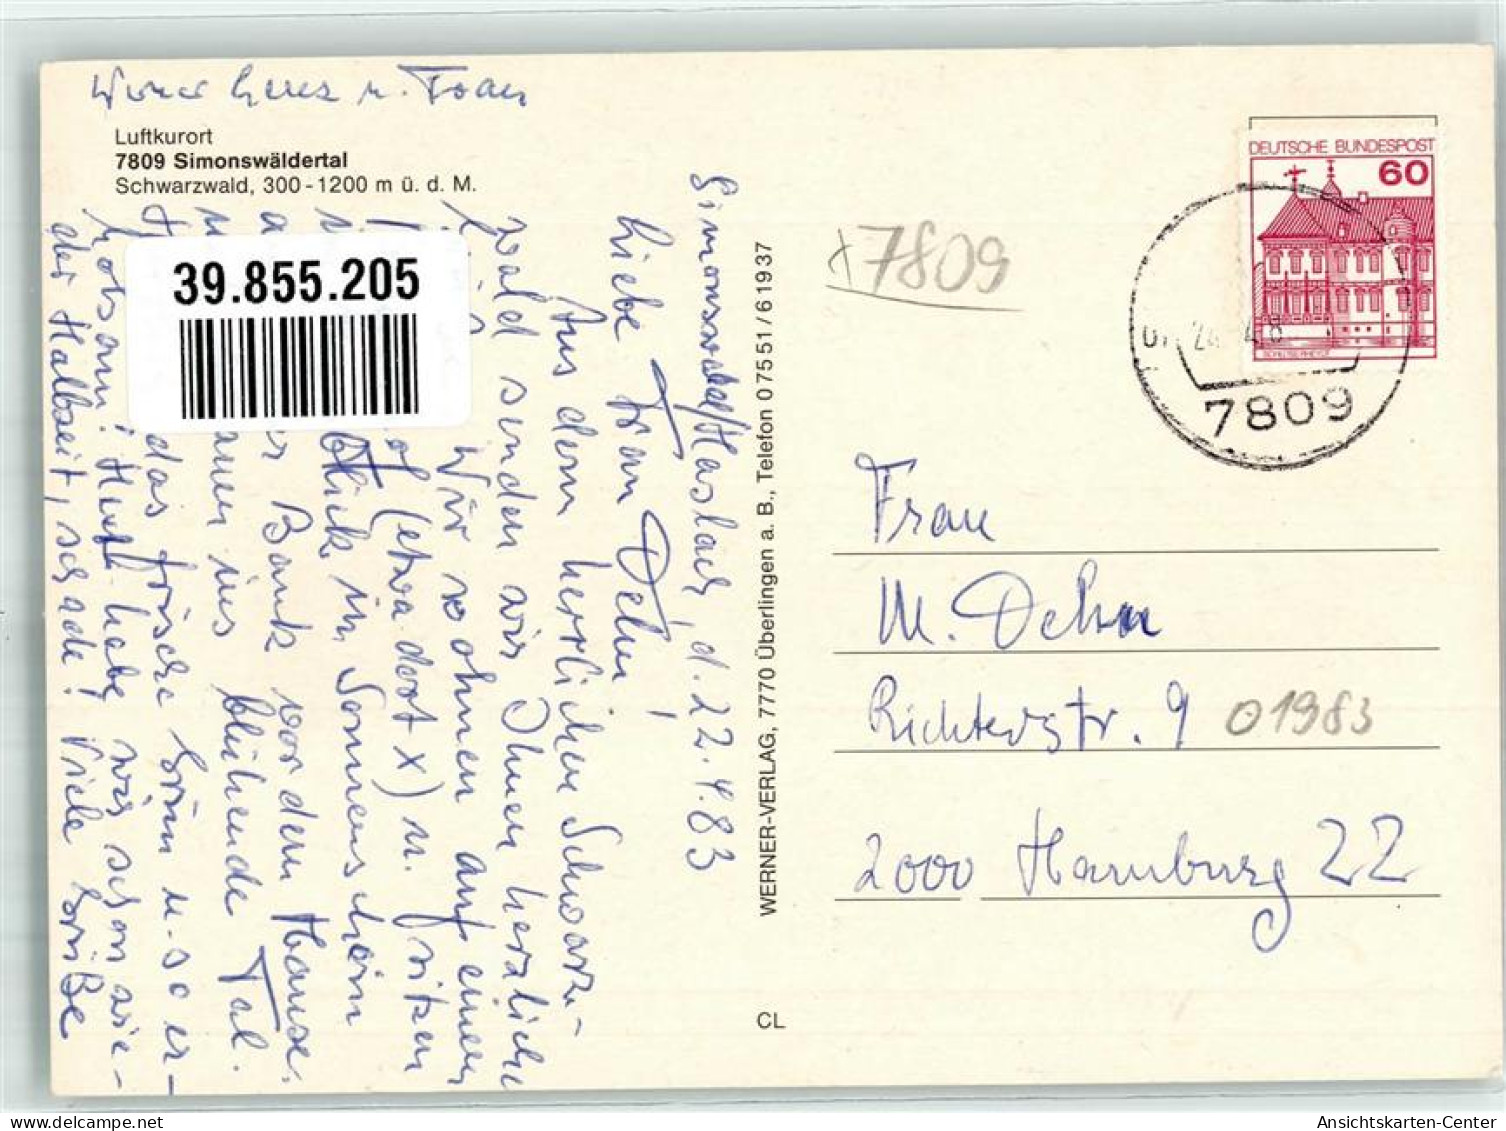 Luftkurort
7809 Simonswäldertal
Schwarzwald, 300 - 1200 m ü. d. M.
39.855.205
Simonswald/Haslach, d. 22.4.83
Liebe Frau Dehn!
Aus dem herrlichen Schwarz-
wald senden wir Ihnen herzliche
Wir wohnen auf einem
(etwa dort x) u. sitzen
Blick im Sonnenschein
Bank vor dem Hause
ins blühende Tal.
das frische Grün u. so er-
holsam! Heut habe wir schon wie-
der Halbzeit, schade! Viele Grüße
u. Frau
WERNER-VERLAG, 7770 Überlingen a. B., Telefon 07551/61937
CL
x7809
DEUTSCHE BUNDESPOST
60
7809
Frau
M. Dehn
Richterstr. 9
01983
2000 Hamburg 22
Ansichtskarten-Center